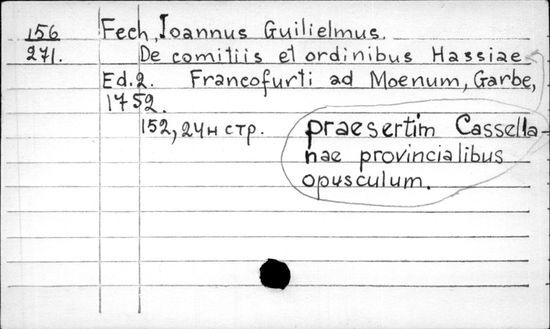 156
271.
Fech, Ioannus Guilielmus.
De comitiis et ordinibus Hassiae
Ed. 2. Francofurti ad Moenum, Garbe,
1752.
152, 24н стр.
praesertim Cassella-
nae provincialibus
opusculum.